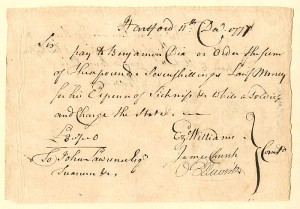 Hartford 11th Decr 1777
Sir
pay to Benjamin Cia or Order the sum
of Three pounds Seven shillings Lawf Money
for the Expence of Sickness &c while a Soldier
and Charge the State
£3.7.0
Ezl Williams
James Church
Comtt
To John Lawrence Esqr
Treasurer &c